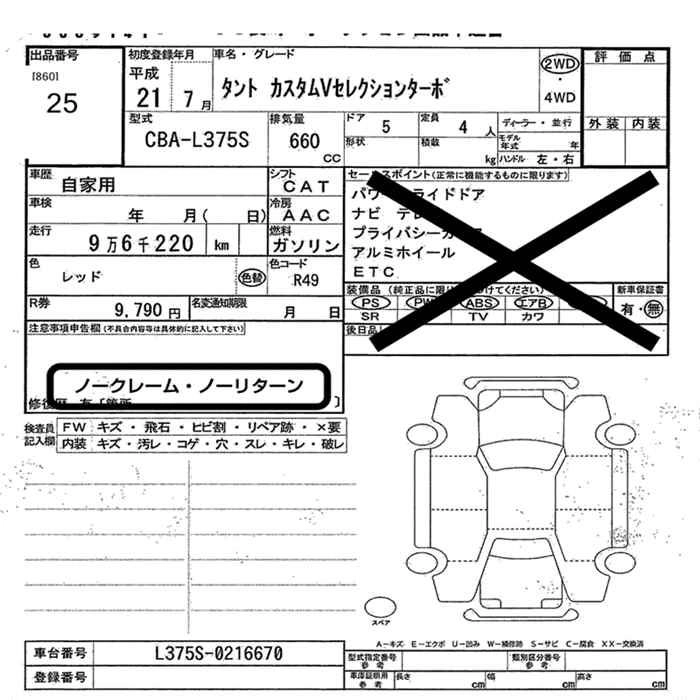 出品番号 初度登録年月 車名・グレード 評価点
[860] 平成 タント カスタムVセレクションターボ 2WD
25 21 7月 ・ 4WD
型式 排気量 ドア 5 定員 4人 ディーラー・並行 外装 内装
CBA-L375S 660 CC 形状 積載 kg モデル年式 年 ハンドル 左・右
車歴 自家用 シフト CAT セールスポイント(正常に機能するものに限ります)
車検 年 月( 日) 冷房 AAC
走行 9万6千220 km 燃料 ガソリン
ナビ
アルミホイール
ETC
色 レッド 色替 色コード R49
装備品 新車保証書
R券 9,790円 名変通知期限 月 日
PS ABS エアB 有・無
SR TV カワ
注意事項申告欄(不具合内容等は具体的に記入して下さい)
ノークレーム・ノーリターン
検査員記入欄 FW キズ・飛石・ヒビ割・リペア跡・×要
内装 キズ・汚レ・コゲ・穴・スレ・キレ・破レ
スペア
A-キズ E-エクボ U-凹み W-補修跡 S-サビ C-腐食 XX-交換済
車台番号 L375S-0216670 型式指定番号参考 類別区分番号参考
登録番号 車庫証明用参考 長さ cm 幅 cm 高さ cm